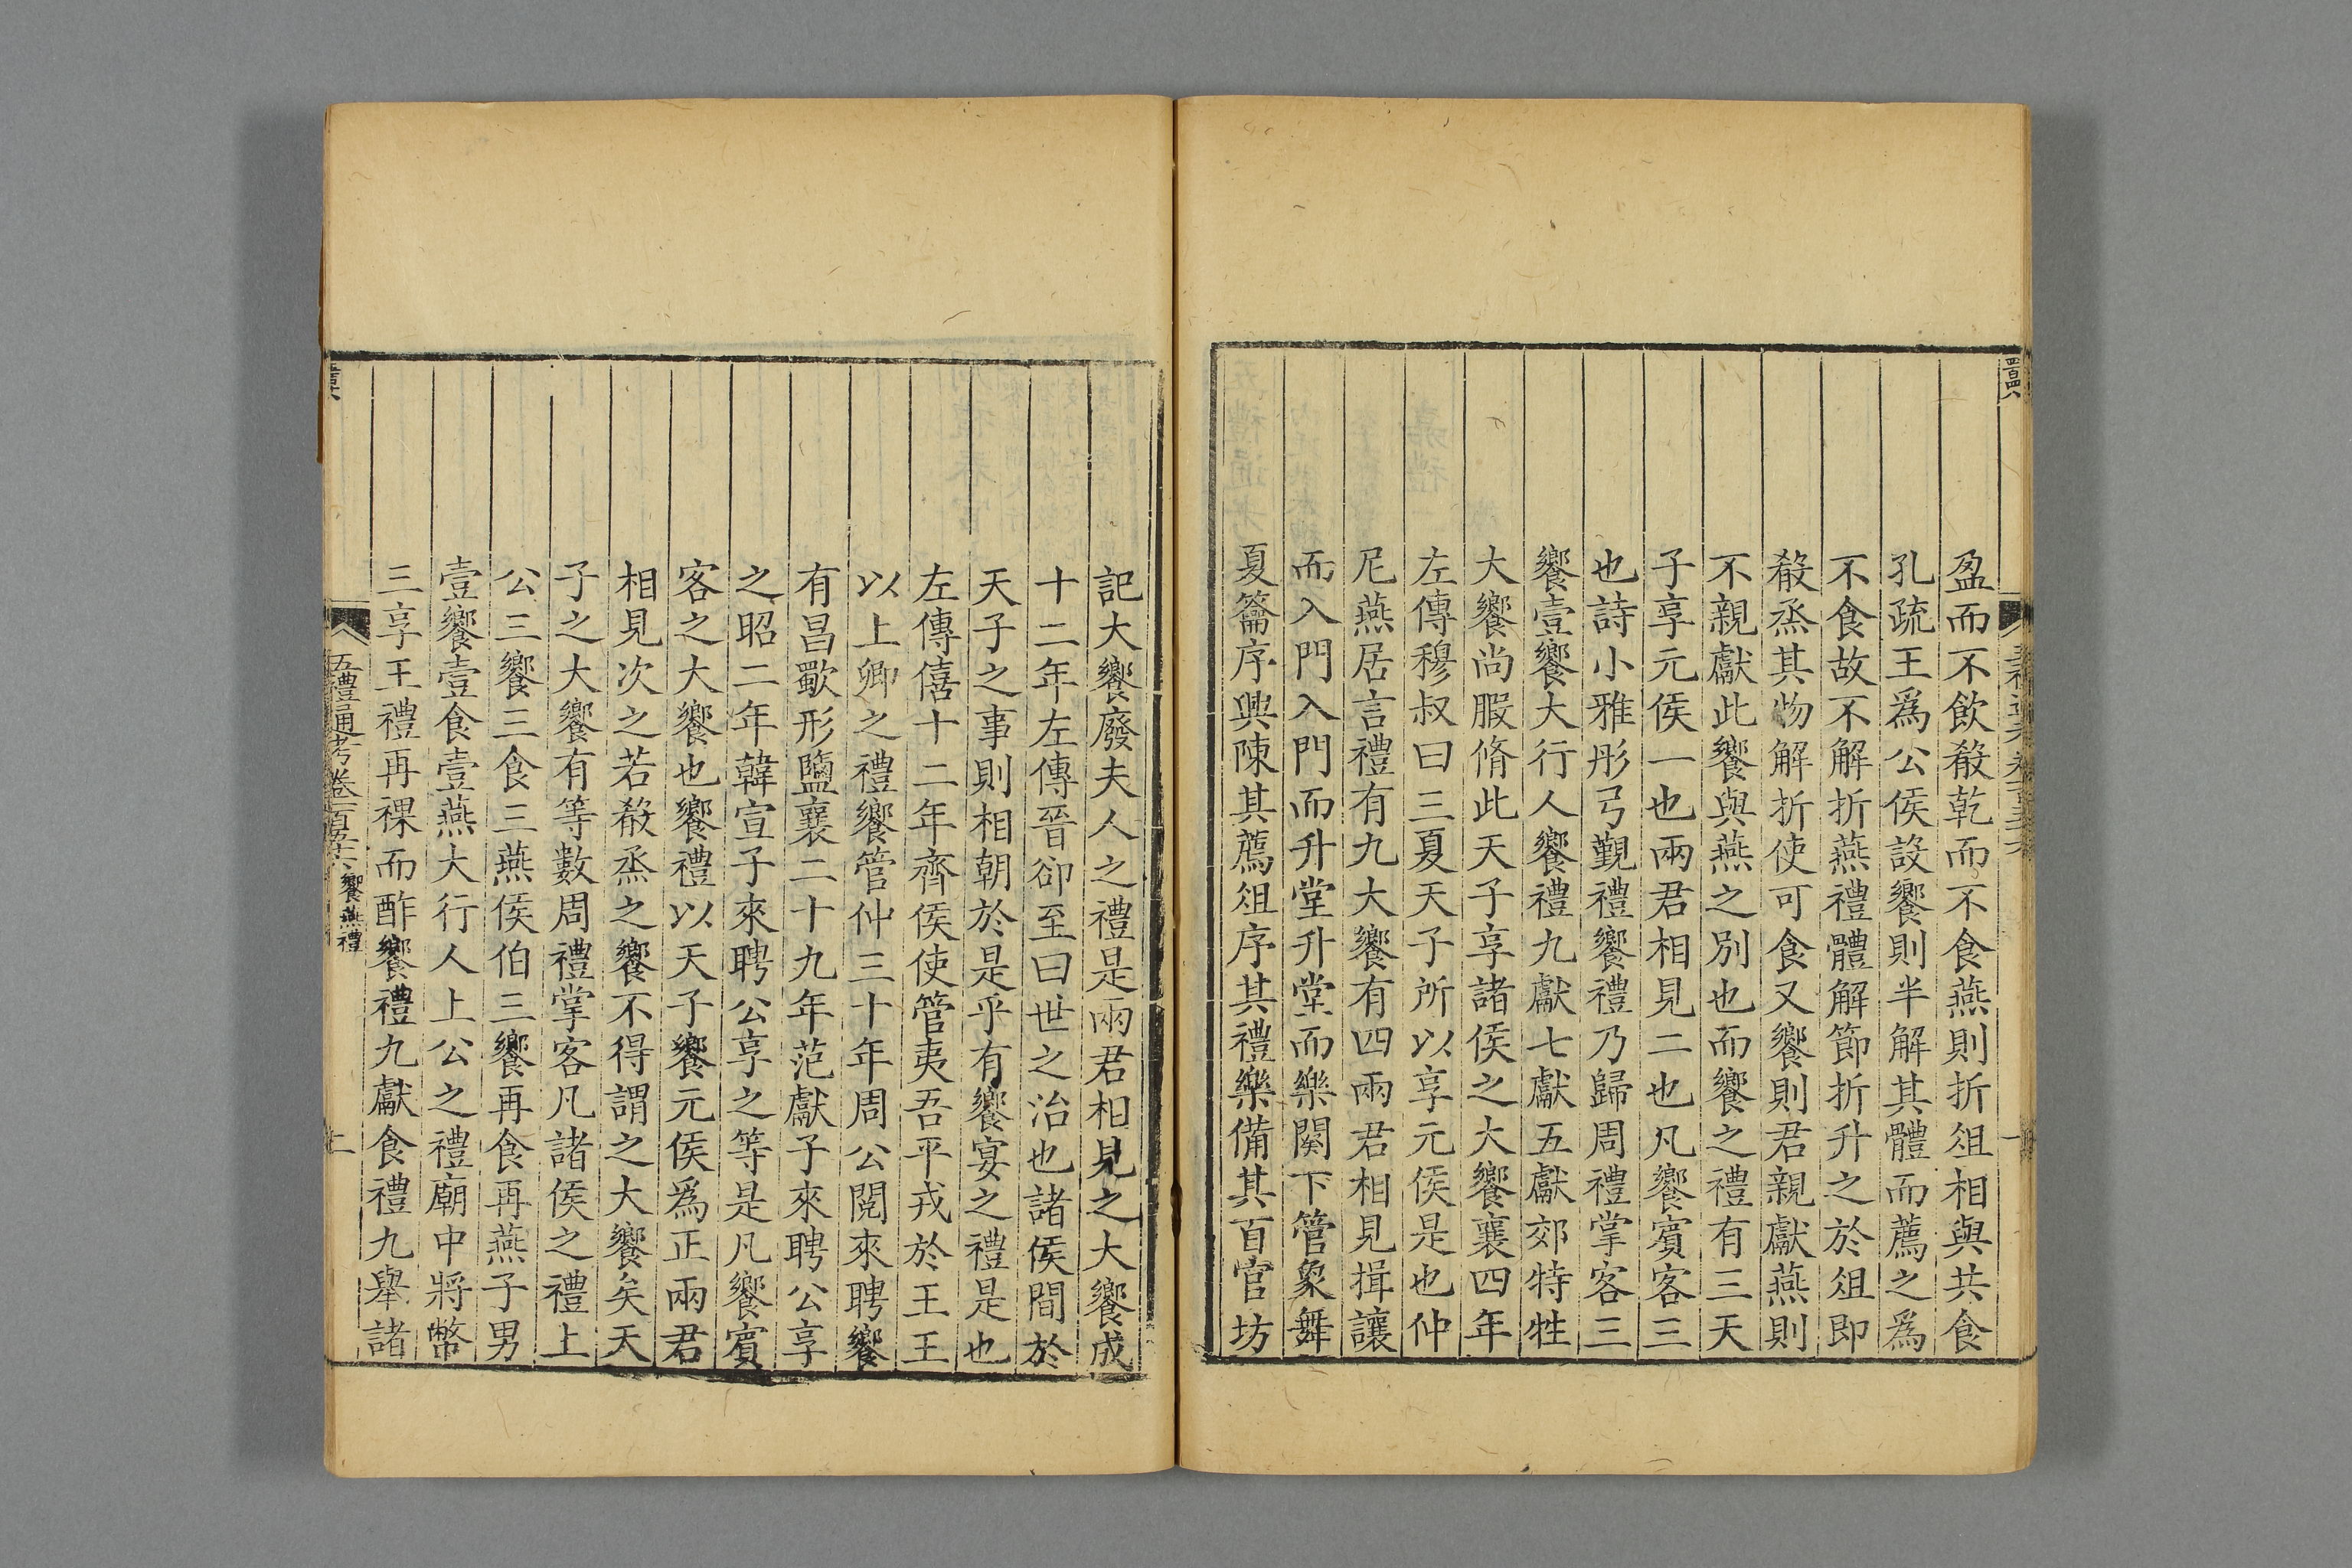 盈而不飲殽乾而不食燕則折俎相與共食
孔疏王爲公侯設饗則半解其體而薦之爲
不食故不解折燕禮體解節折升之於俎即
殽烝其物解折使可食又饗則君親獻燕則
不親獻此饗與燕之別也而饗之禮有三天
子享元侯一也兩君相見二也凡饗賓客三
也詩小雅彤弓覲禮饗禮乃歸周禮掌客三
饗壹饗大行人饗禮九獻七獻五獻郊特牲
大饗尚腶脩此天子享諸侯之大饗襄四年
左傳穆叔曰三夏天子所以享元侯是也仲
尼燕居言禮有九大饗有四兩君相見揖讓
而入門入門而升堂升堂而樂闋下管象舞
夏籥序興陳其薦俎序其禮樂備其百官坊
記大饗廢夫人之禮是兩君相見之大饗成
十二年左傳晉卻至曰世之治也諸侯間於
天子之事則相朝於是乎有饗宴之禮是也
左傳僖十二年齊侯使管夷吾平戎於王王
以上卿之禮饗管仲三十年周公閱來聘饗
有昌歜形鹽襄二十九年范獻子來聘公享
之昭二年韓宣子來聘公享之等是凡饗賓
客之大饗也饗禮以天子饗元侯爲正兩君
相見次之若殽烝之饗不得謂之大饗矣天
子之大饗有等數周禮掌客凡諸侯之禮上
公三饗三食三燕侯伯三饗再食再燕子男
壹饗壹食壹燕大行人上公之禮廟中將幣
三享王禮再祼而酢饗禮九獻食禮九舉諸
五禮通考卷一百五十六 饗燕禮